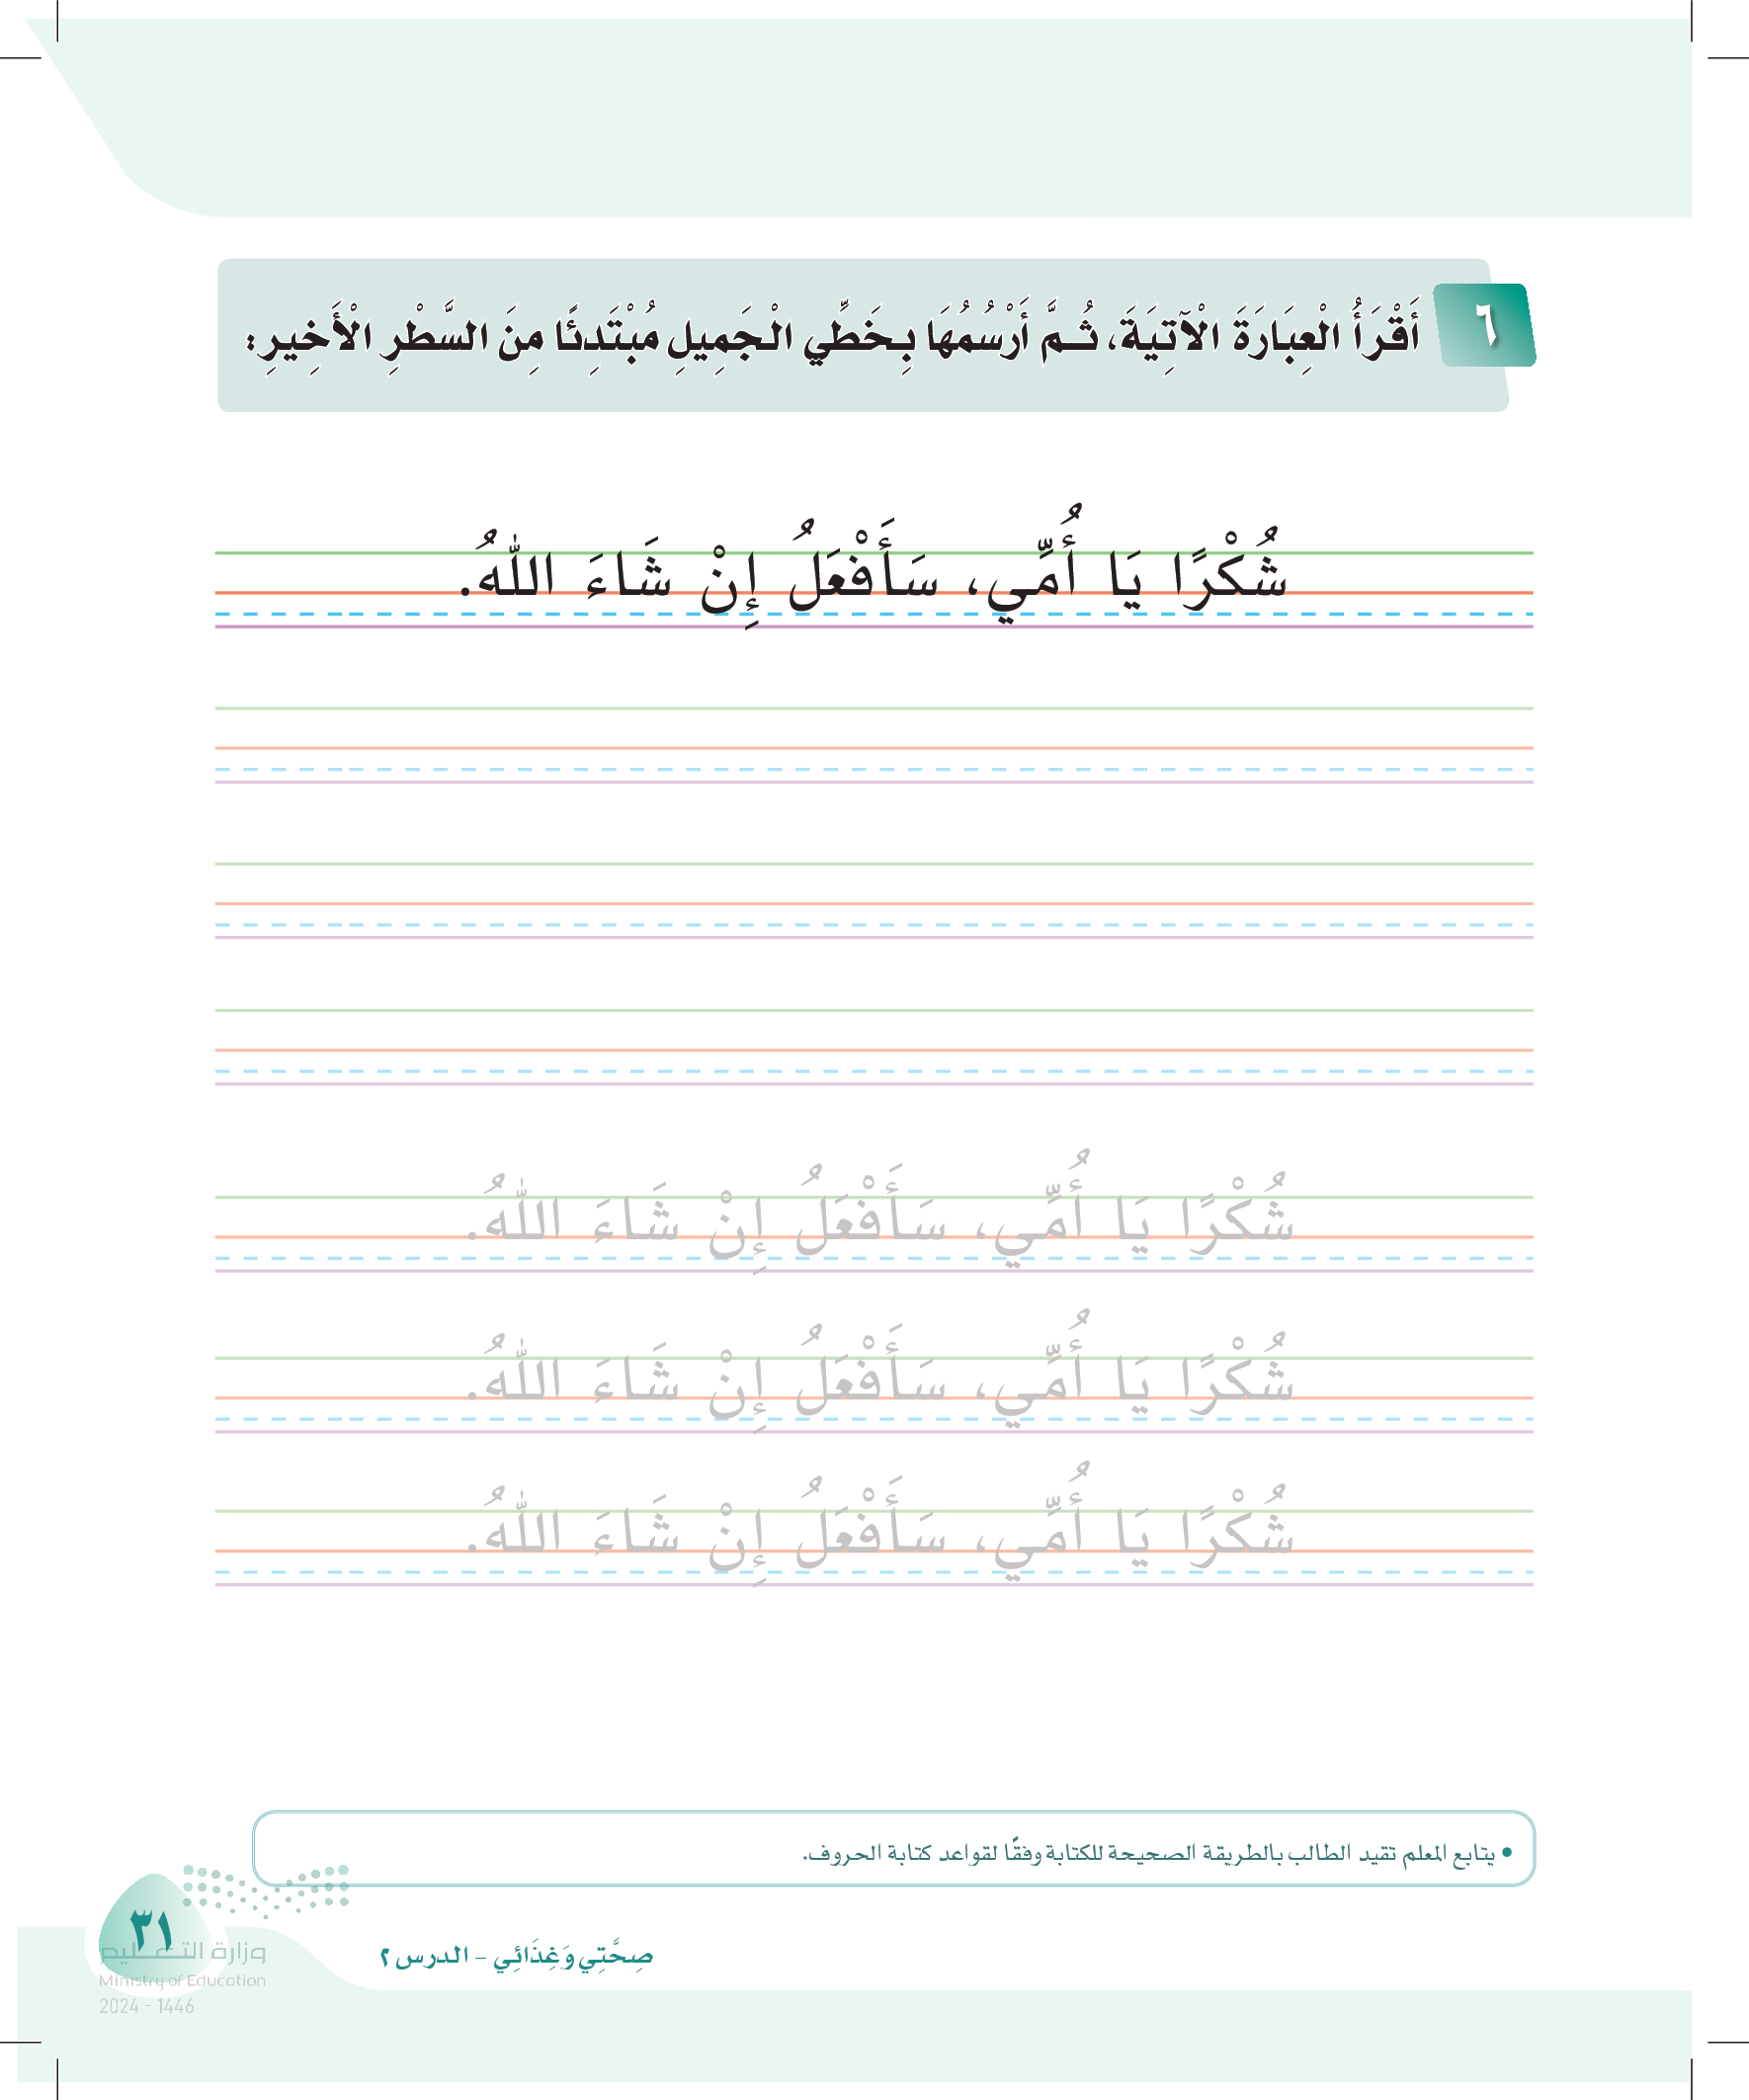 ٦ أَقْرَأُ الْعِبَارَةَ الْآتِيَةَ، ثُـمَّ أَرْسُمُهَا بِخَطِّي الْجَمِيلِ مُبْتَدِئًا مِنَ السَّطْرِ الْأَخِيرِ:
شُكْرًا يَا أُمِّي، سَأَفْعَلُ إِنْ شَاءَ اللهُ.
شُكْرًا يَا أُمِّي، سَأَفْعَلُ إِنْ شَاءَ اللهُ.
شُكْرًا يَا أُمِّي، سَأَفْعَلُ إِنْ شَاءَ اللهُ.
شُكْرًا يَا أُمِّي، سَأَفْعَلُ إِنْ شَاءَ اللهُ.
• يتابع المعلم تقيد الطالب بالطريقة الصحيحة للكتابة وفقًا لقواعد كتابة الحروف.
صِحَّتِي وَغِذَائِي – الدرس ٢
٣١
وزارة التعليم
Ministry of Education
2024 - 1446